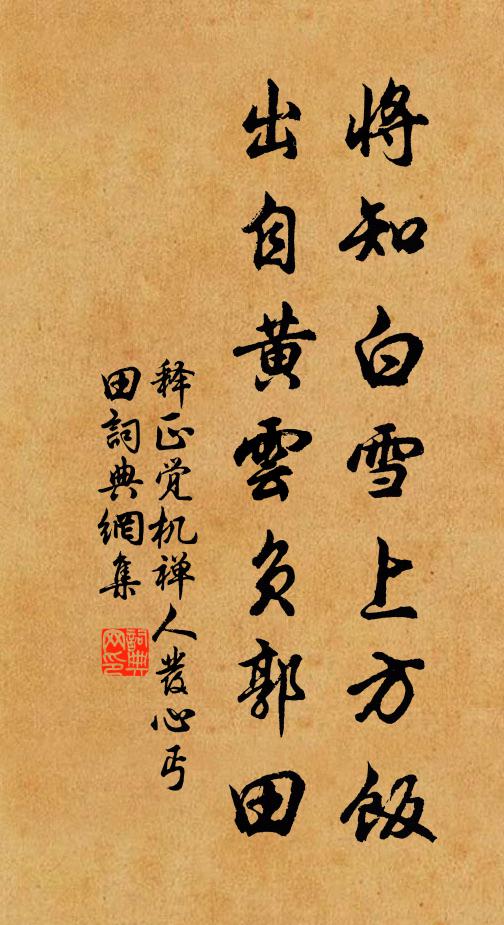 将知白雪上方飯
出自黄雲負郭田
释正觉机禅人發心丐
田詞典網集
詞典
网印